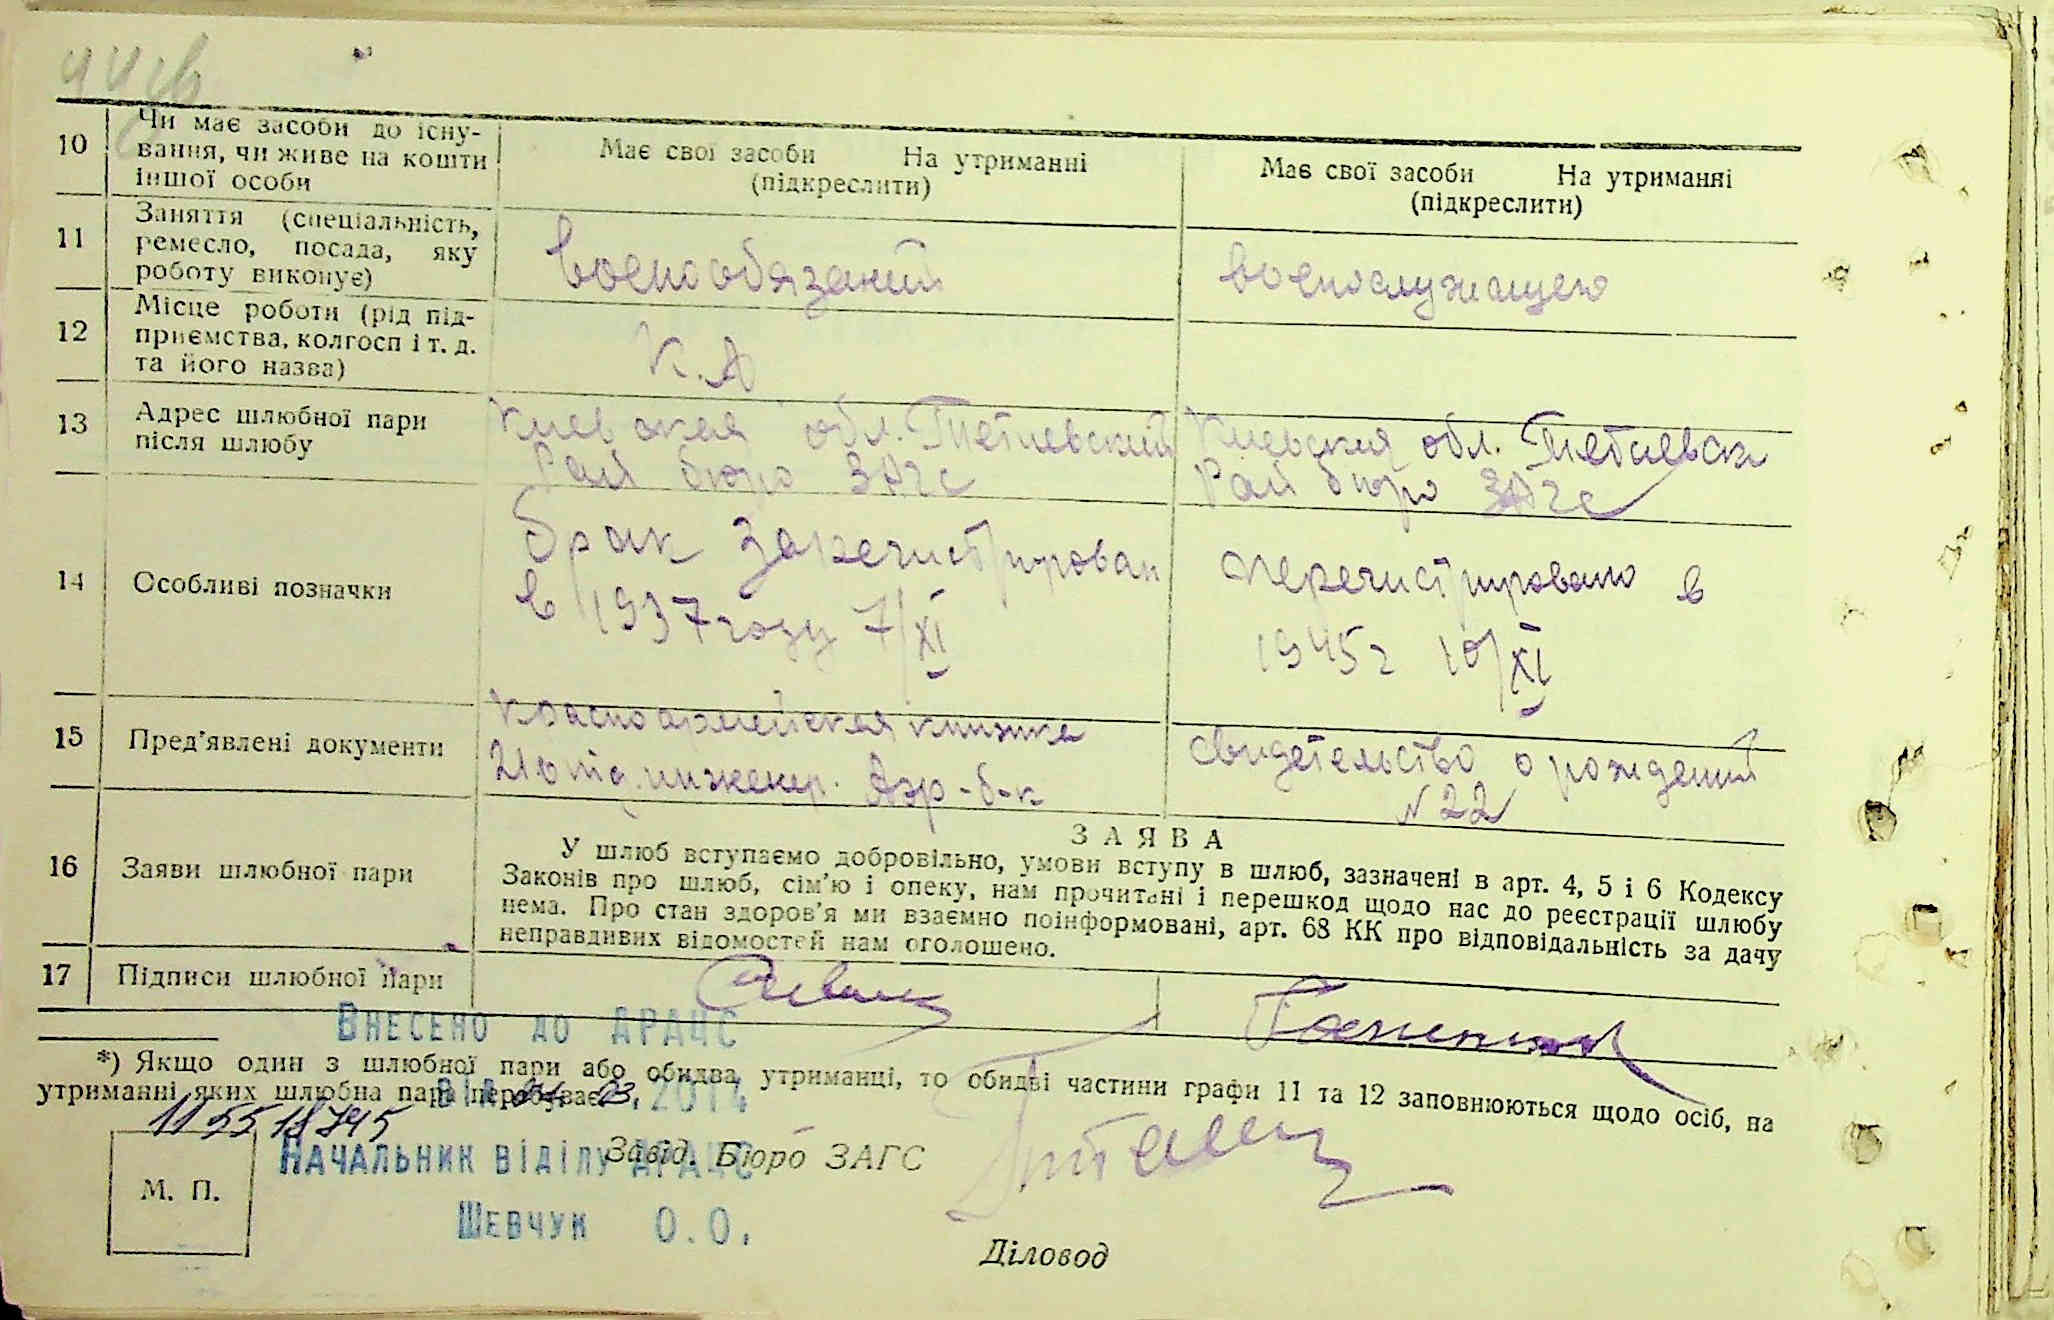 10
Чи має засоби до існу-
вання, чи живе на кошти
іншої особи
Має свої засоби На утриманні
(підкреслити)
Має свої засоби На утриманні
(підкреслити)
11
Заняття (спеціальність,
ремесло, посада, яку
роботу виконує)
военообязаний
военослужащею
12
Місце роботи (рід під-
приємства, колгосп і т. д.
та його назва)
К.А
13
Адрес шлюбної пари
після шлюбу
Киевская обл. Тетиевский
Рай бюро ЗАГС
Киевская обл. Тетиевск
Рай бюро ЗАГС
14
Особливі позначки
брак зарегистрирован
в 1937 году 7/XI
перегистрировано в
1945 г 10/XI
15
Пред'явлені документи
Красноармейская книжка
21 отд. инженер. Аэр-б-н
свидетельство о рождении
№ 22
16
Заяви шлюбної пари
ЗАЯВА
У шлюб вступаємо добровільно, умови вступу в шлюб, зазначені в арт. 4, 5 і 6 Кодексу
Законів про шлюб, сім'ю і опеку, нам прочитані і перешкод щодо нас до реєстрації шлюбу
нема. Про стан здоров'я ми взаємно поінформовані, арт. 68 КК про відповідальність за дачу
неправдивих відомостей нам оголошено.
17
Підписи шлюбної пари
Внесено до ДРАЦС
*) Якщо один з шлюбної пари або обидва утриманці, то обидві частини графи 11 та 12 заповнюються щодо осіб, на
утриманні яких шлюбна пара перебуває.
від 03.2014
Начальник відділу ДРАЦС
Завід. Бюро ЗАГС
М. П.
Шевчук О.О.
Діловод